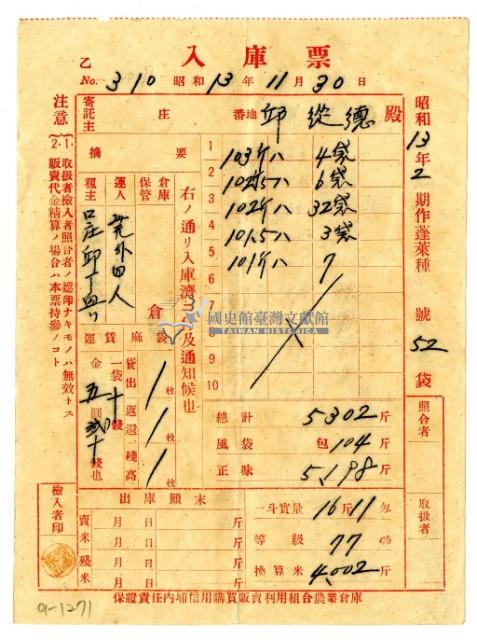 入庫票
乙
No. 310 昭和13年11月30日
寄託主 庄 番地 邱從德 殿
昭和13年2期作蓬萊種 號 52袋
摘要
1 103斤八 4袋
2 102斤5八 6袋
3 102斤八 32袋
4 101.5八 3袋
5 101斤八 7
6
7
9
10
右ノ通リ入庫濟ニ付及通知候也
倉庫保管
運人
籾主
倉
運賃
麻袋
貸出 1枚
返還 1枚
殘高 1枚
一袋 十錢
金五圓貳十錢也
總計 5302斤
風袋 包 104斤
正味 5,198斤
一斗實量 16斤11
等級 77
換算米 4,002斤
照合者
取扱者
出庫顛末
賣米 月 日 斤
月 日 斤
殘米 月 日 斤
月 日 斤
注意
1. 取扱者檢入者照合者ノ認印ナキモノハ無效トス
2. 販賣代金精算ノ場合ハ本票持參ノコト
檢入者印
保證責任內埔信用購買販賣利用組合農業倉庫
9-1271
國史館臺灣文獻館
TAIWAN HISTORICA